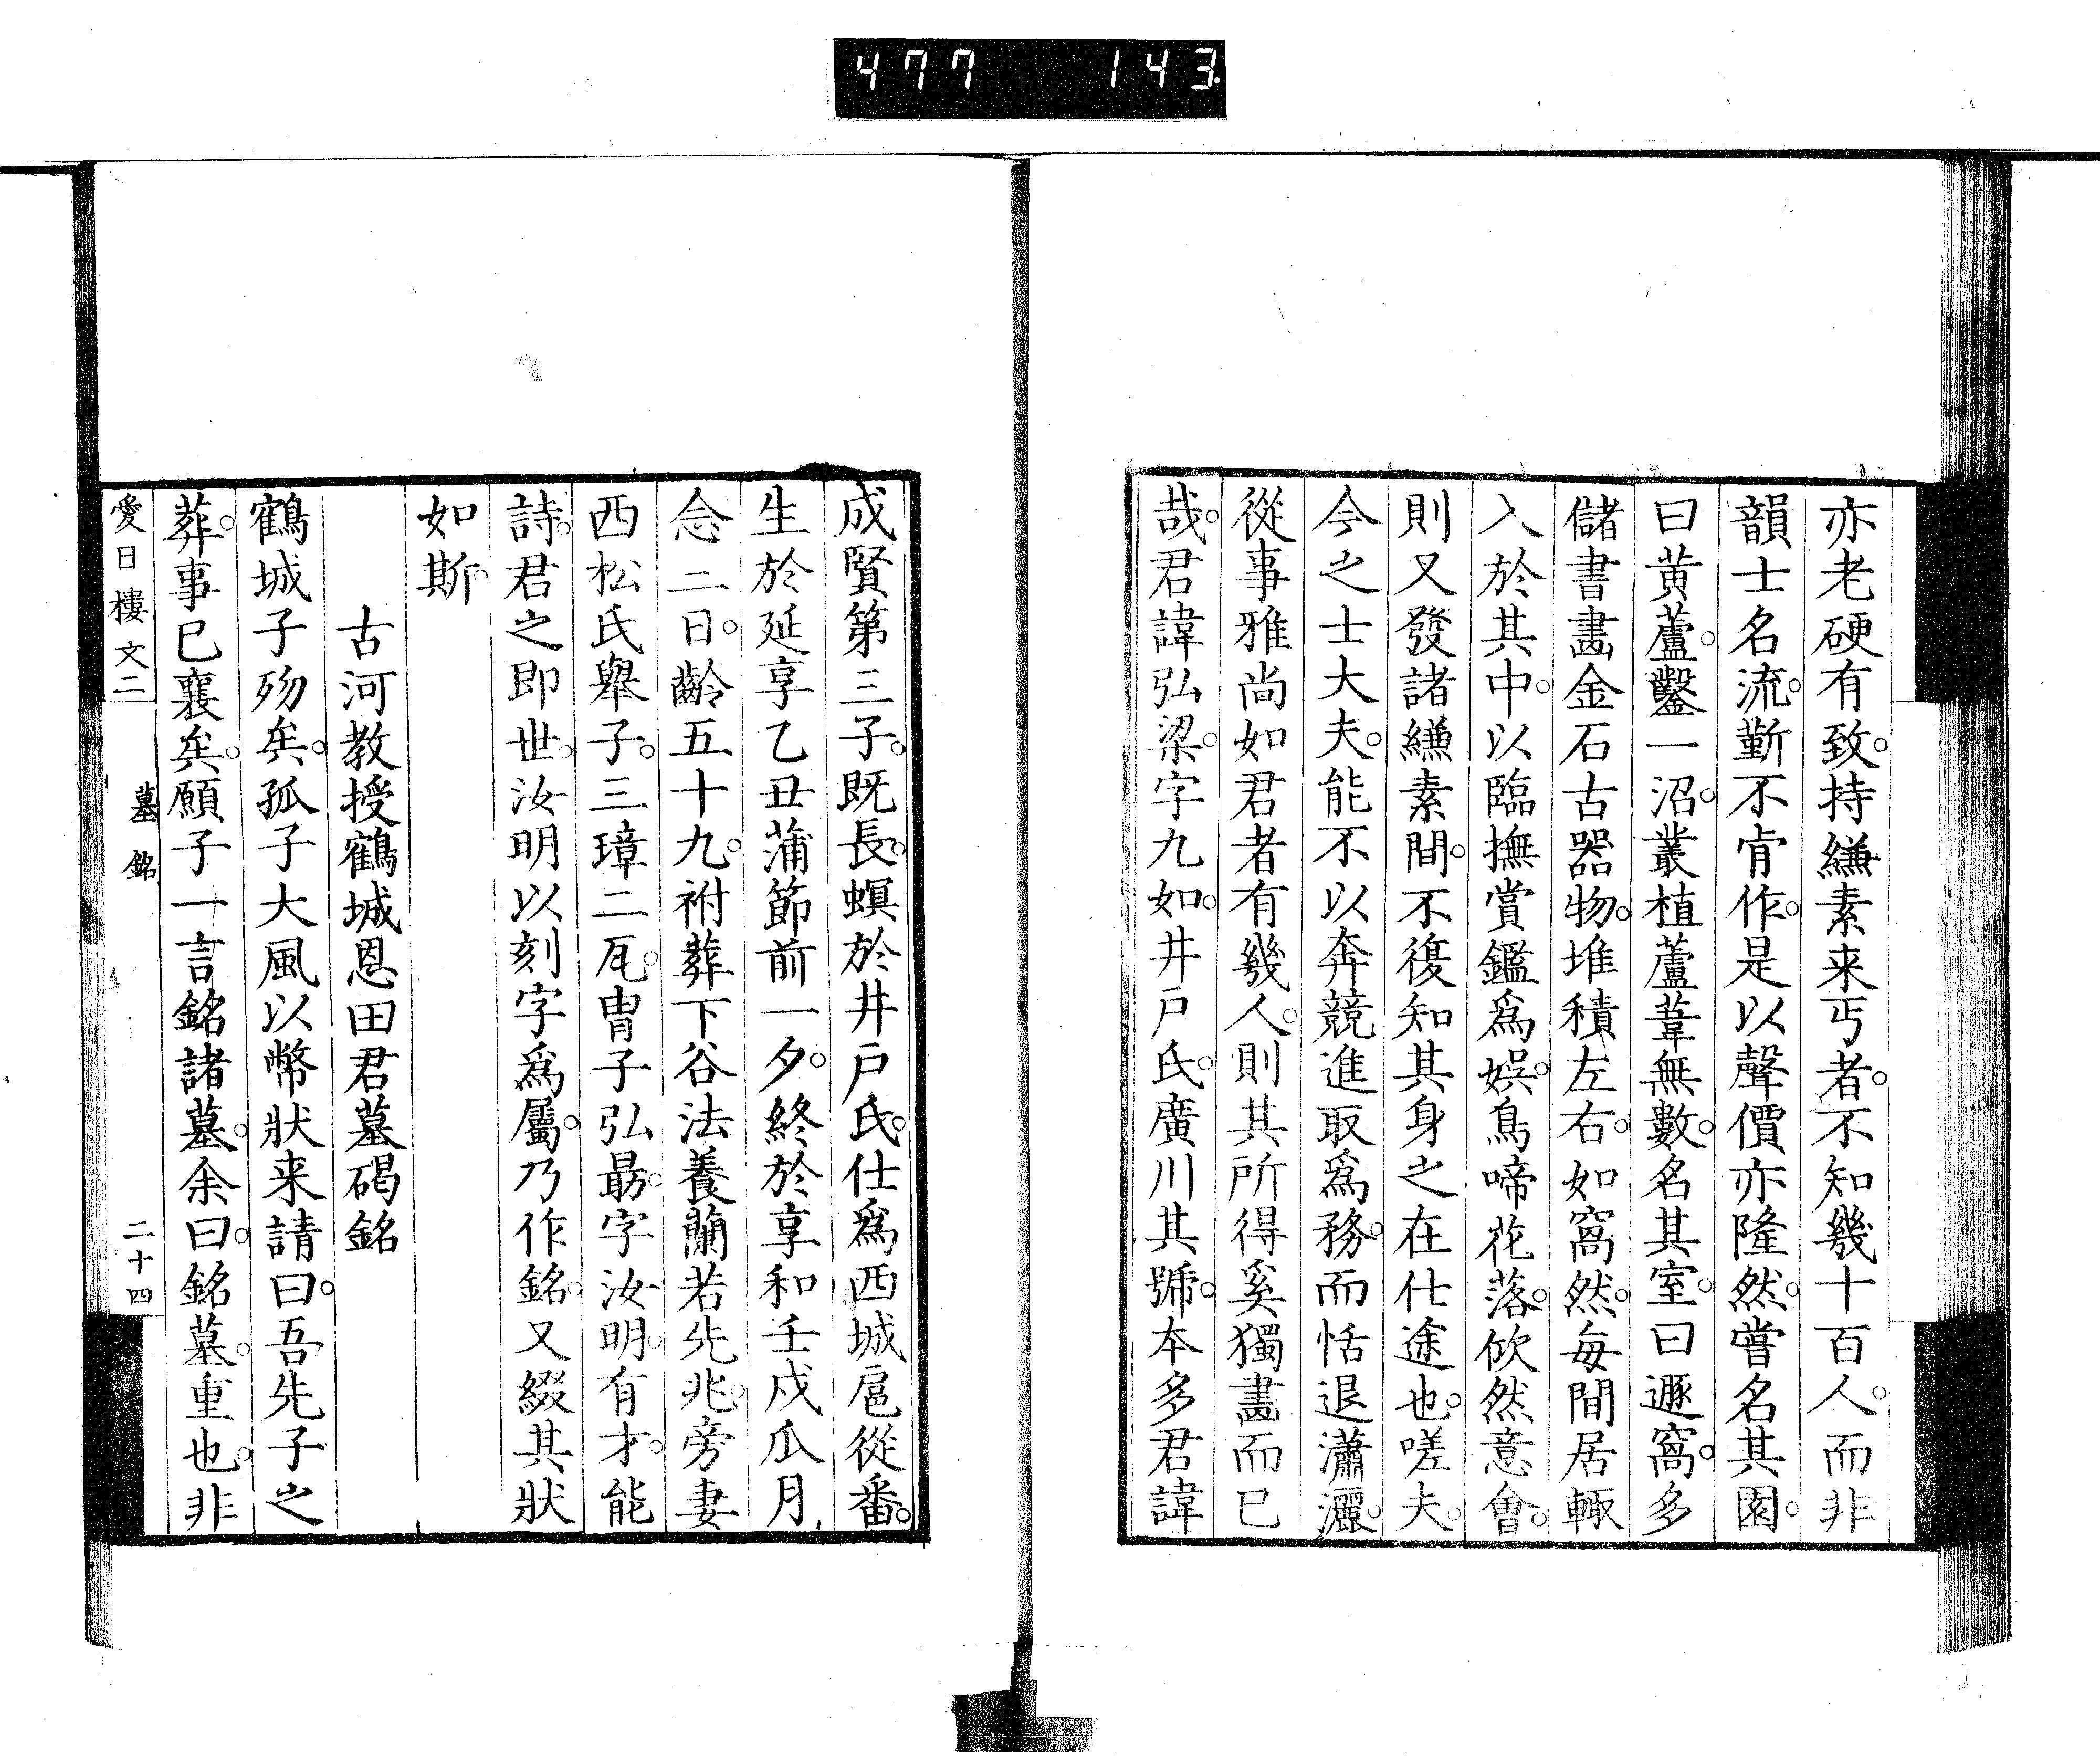 477 143
亦老硬有致。持縑素来丐者。不知幾十百人。而非
韻士名流。靳不肯作。是以聲價亦隆然。嘗名其園。
曰黄蘆。鑿一沼。叢植蘆葦無數。名其室。曰遯窩。多
儲書畫金石古器物。堆積左右。如窩然。每間居輙
入於其中。以臨撫賞鑑爲娯。鳥啼花落。欣然意會。
則又發諸縑素間。不復知其身之在仕途也。嗟夫。
今之士大夫。能不以奔競進取爲務。而恬退瀟灑。
從事雅尚如君者有幾人。則其所得奚獨畫而已
哉。君諱弘梁。字九如。井戸氏。廣川其號。本多君諱
成賢第三子。既長。螟於井戸氏。仕爲西城扈從番。
生於延享乙丑蒲節前一夕。終於享和壬戌瓜月
念二日。齡五十九。祔葬下谷法養蘭若先兆。旁妻
西松氏舉子。三璋二瓦。冑子弘勗。字汝明。有才。能
詩。君之即世。汝明以刻字爲屬。乃作銘。又綴其狀
如斯。
古河教授鶴城恩田君墓碣銘
鶴城子歾矣。孤子大風以幣狀来請曰。吾先子之
葬。事已襄矣。願子一言銘諸墓。余曰。銘墓。重也。非
愛日樓文二 墓銘 二十四